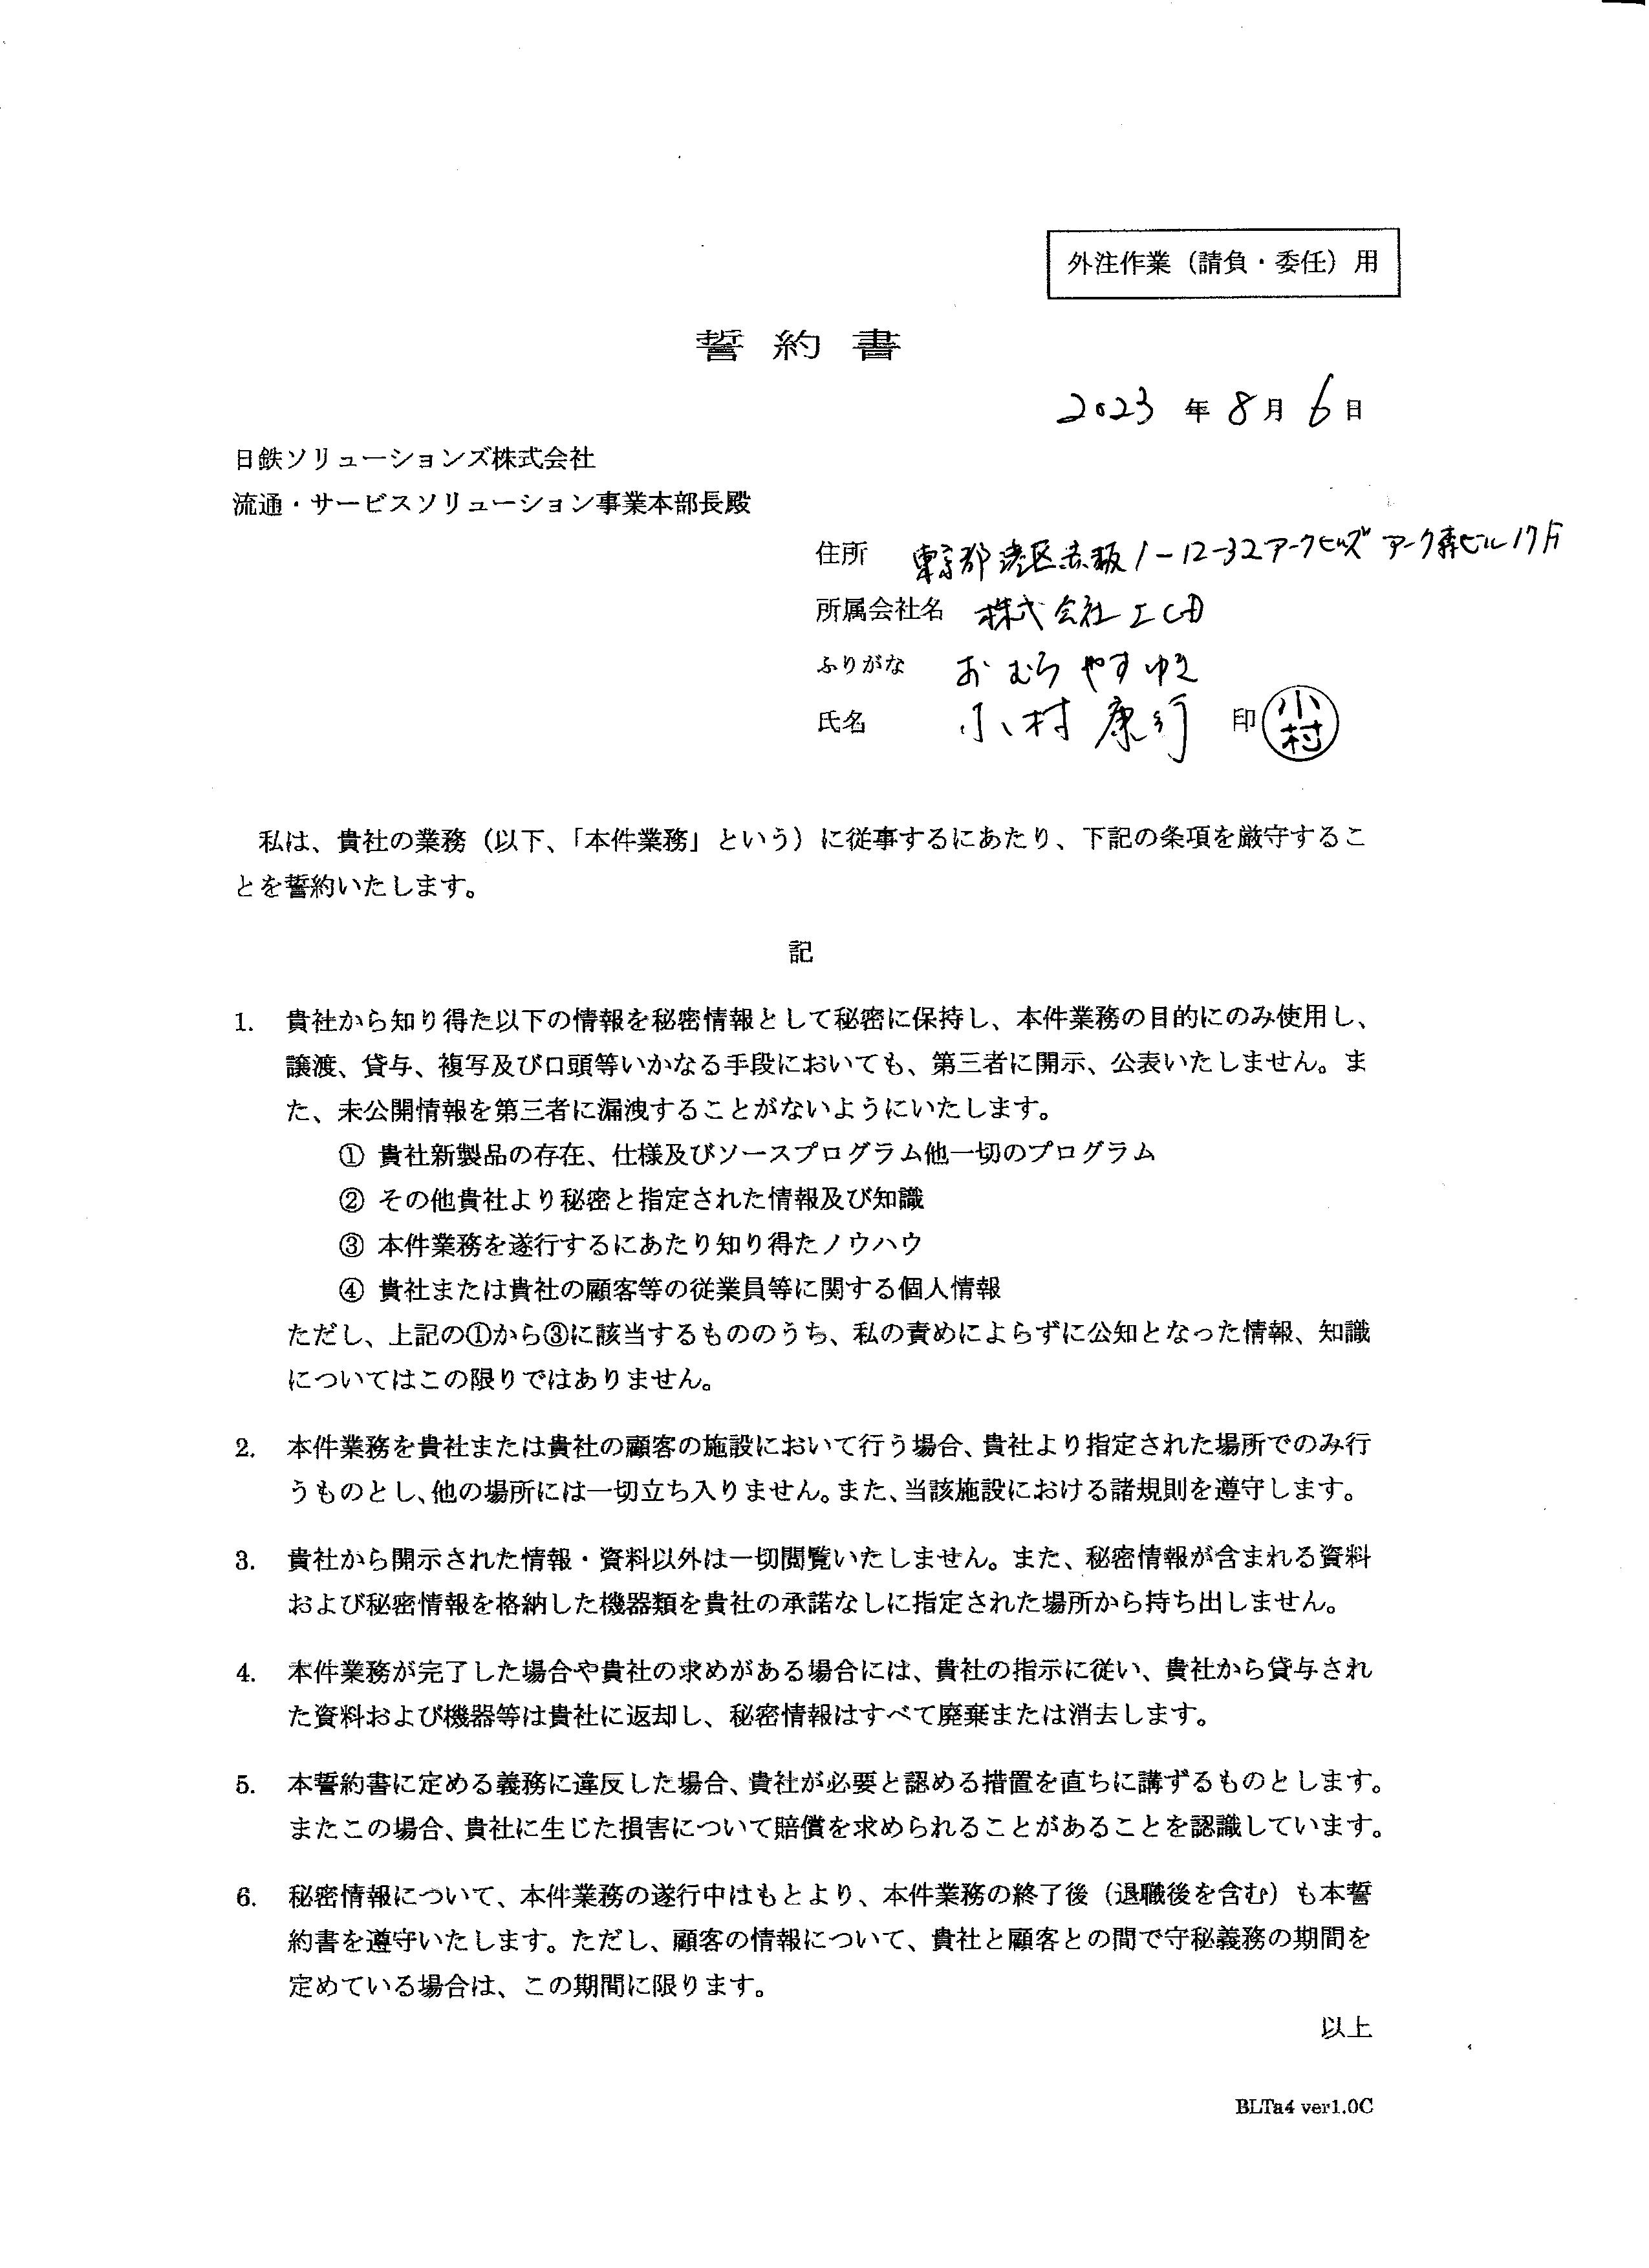 外注作業（請負・委任）用
誓約書
2023 年 8 月 6 日
日鉄ソリューションズ株式会社
流通・サービスソリューション事業本部長殿
住所 東京都港区赤坂1-12-32アークヒルズ アーク森ビル17F
所属会社名 株式会社ICD
ふりがな おむら やすゆき
氏名 小村 康行 印 小村
私は、貴社の業務（以下、「本件業務」という）に従事するにあたり、下記の条項を厳守するこ
とを誓約いたします。
記
1. 貴社から知り得た以下の情報を秘密情報として秘密に保持し、本件業務の目的にのみ使用し、
譲渡、貸与、複写及び口頭等いかなる手段においても、第三者に開示、公表いたしません。ま
た、未公開情報を第三者に漏洩することがないようにいたします。
① 貴社新製品の存在、仕様及びソースプログラム他一切のプログラム
② その他貴社より秘密と指定された情報及び知識
③ 本件業務を遂行するにあたり知り得たノウハウ
④ 貴社または貴社の顧客等の従業員等に関する個人情報
ただし、上記の①から③に該当するもののうち、私の責めによらずに公知となった情報、知識
についてはこの限りではありません。
2. 本件業務を貴社または貴社の顧客の施設において行う場合、貴社より指定された場所でのみ行
うものとし、他の場所には一切立ち入りません。また、当該施設における諸規則を遵守します。
3. 貴社から開示された情報・資料以外は一切閲覧いたしません。また、秘密情報が含まれる資料
および秘密情報を格納した機器類を貴社の承諾なしに指定された場所から持ち出しません。
4. 本件業務が完了した場合や貴社の求めがある場合には、貴社の指示に従い、貴社から貸与され
た資料および機器等は貴社に返却し、秘密情報はすべて廃棄または消去します。
5. 本誓約書に定める義務に違反した場合、貴社が必要と認める措置を直ちに講ずるものとします。
またこの場合、貴社に生じた損害について賠償を求められることがあることを認識しています。
6. 秘密情報について、本件業務の遂行中はもとより、本件業務の終了後（退職後を含む）も本誓
約書を遵守いたします。ただし、顧客の情報について、貴社と顧客との間で守秘義務の期間を
定めている場合は、この期間に限ります。
以上
BLTa4 ver1.0C